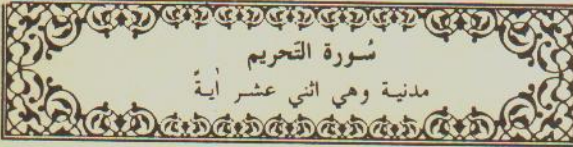 سُورة التَحريم
مدنيـة وهي اثني عشـر أيـةً